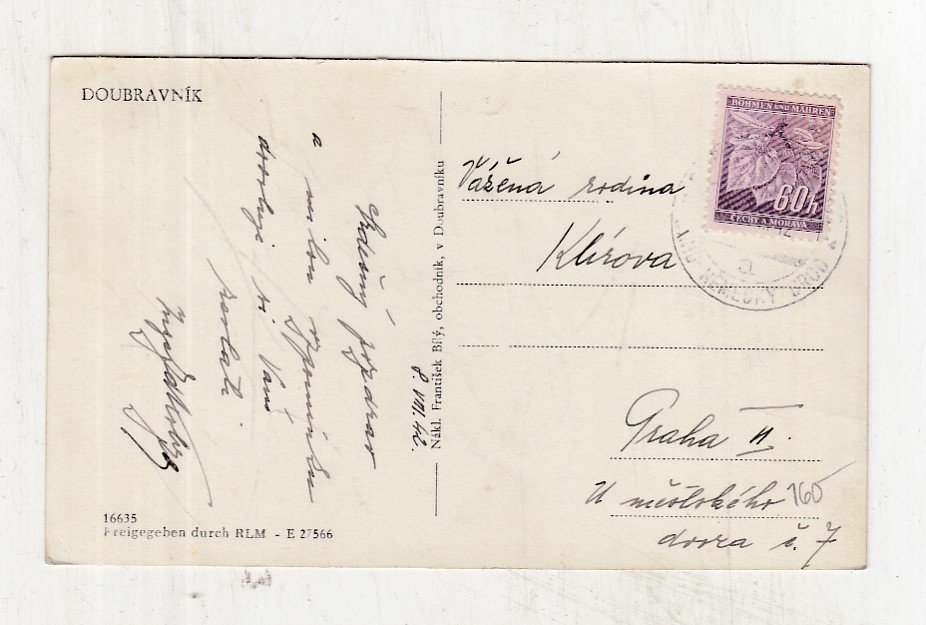 DOUBRAVNÍK
Srdečný pozdrav
a milou vzpomínku
dovoluji si Vám
zaslati.
8. VIII. 42.
Nákl. František Bílý, obchodník, v Doubravníku
16635
Freigegeben durch RLM - E 27566
BÖHMEN UND MÄHREN
60h
ČECHY A MORAVA
a
NĚMECKÝ BROD
Vážená rodina
Klírova
Praha II.
U městského
dvora č. 7
160